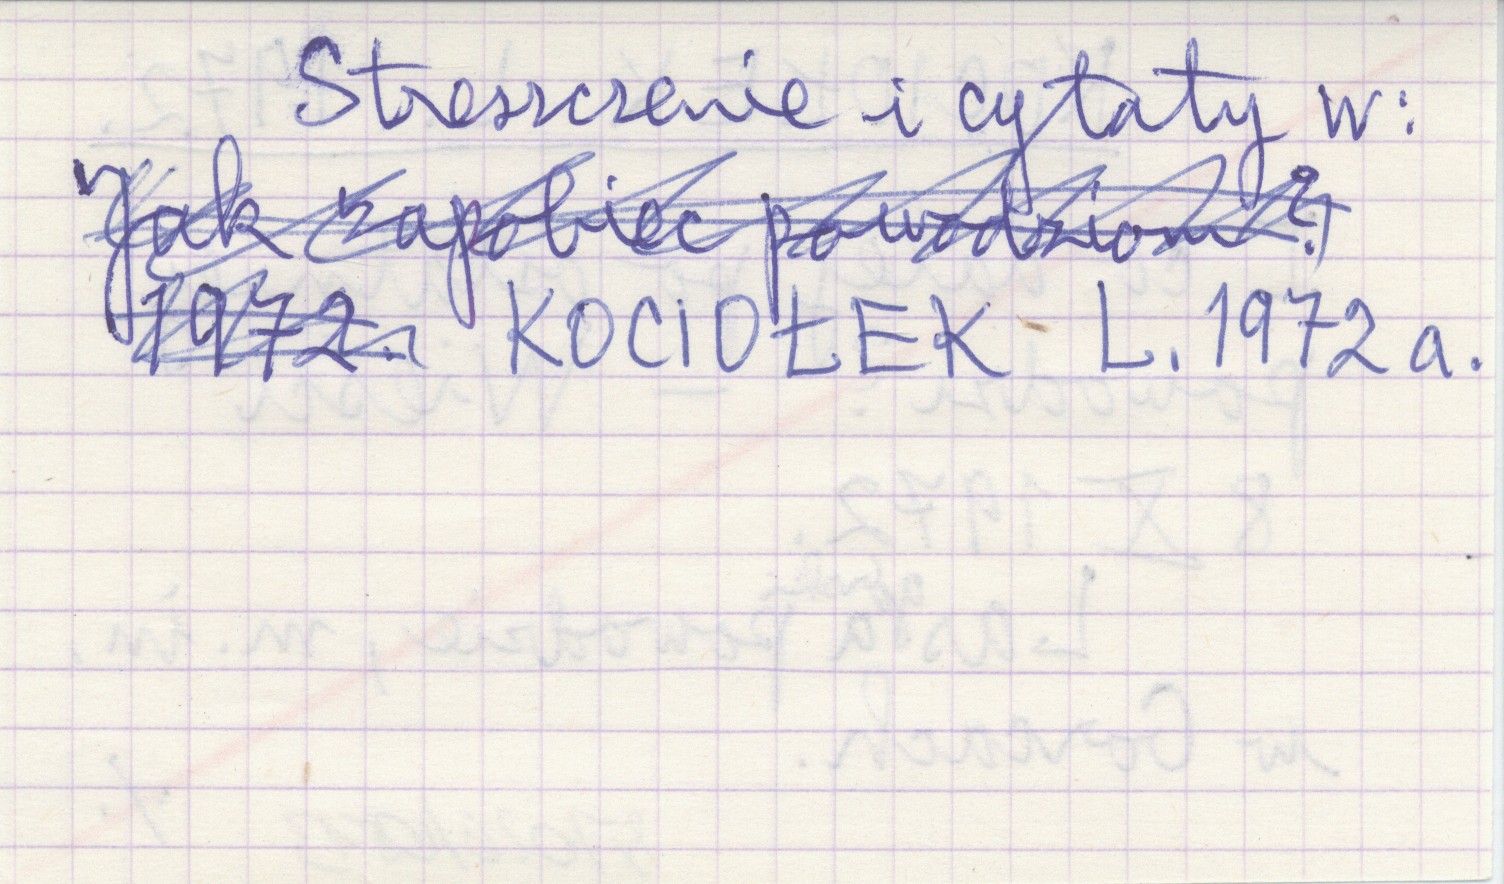 Streszczenie i cytaty w:
Jak zapobiec powodziom?
1972. KOCIOŁEK L. 1972 a.